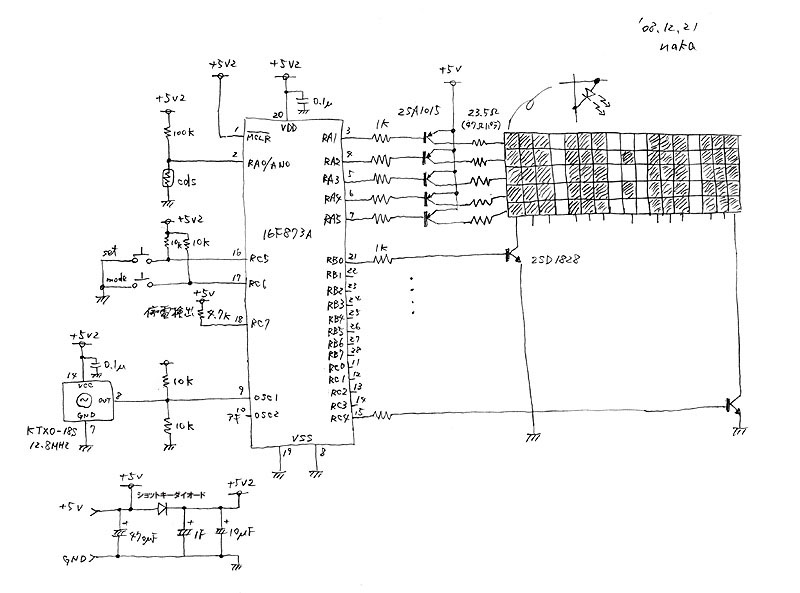 '08.12.21
naka
+5V2
+5V2
0.1μ
+5V2
100k
cds
20
VDD
1
MCLR
2
RA0/AN0
16F873A
+5V
2SA1015
23.5Ω
1K
3
RA1
4
RA2
5
RA3
6
RA4
7
RA5
+5V2
10k
10K
set
mode
16
RC5
17
RC6
+5V
停電検出
4.7K
18
RC7
21
RB0
1K
2SD1828
22
RB1
23
RB2
24
RB3
25
RB4
26
RB5
27
RB6
28
RB7
11
RC0
12
RC1
13
RC2
14
RC3
15
RC4
+5V2
0.1μ
14
VCC
OUT
8
GND
7
KTXO-18S
12.8MHz
10K
10K
9
OSC1
10
OSC2
VSS
19
8
+5V
ショットキーダイオード
+5V2
+5V
470μF
1F
10μF
GND